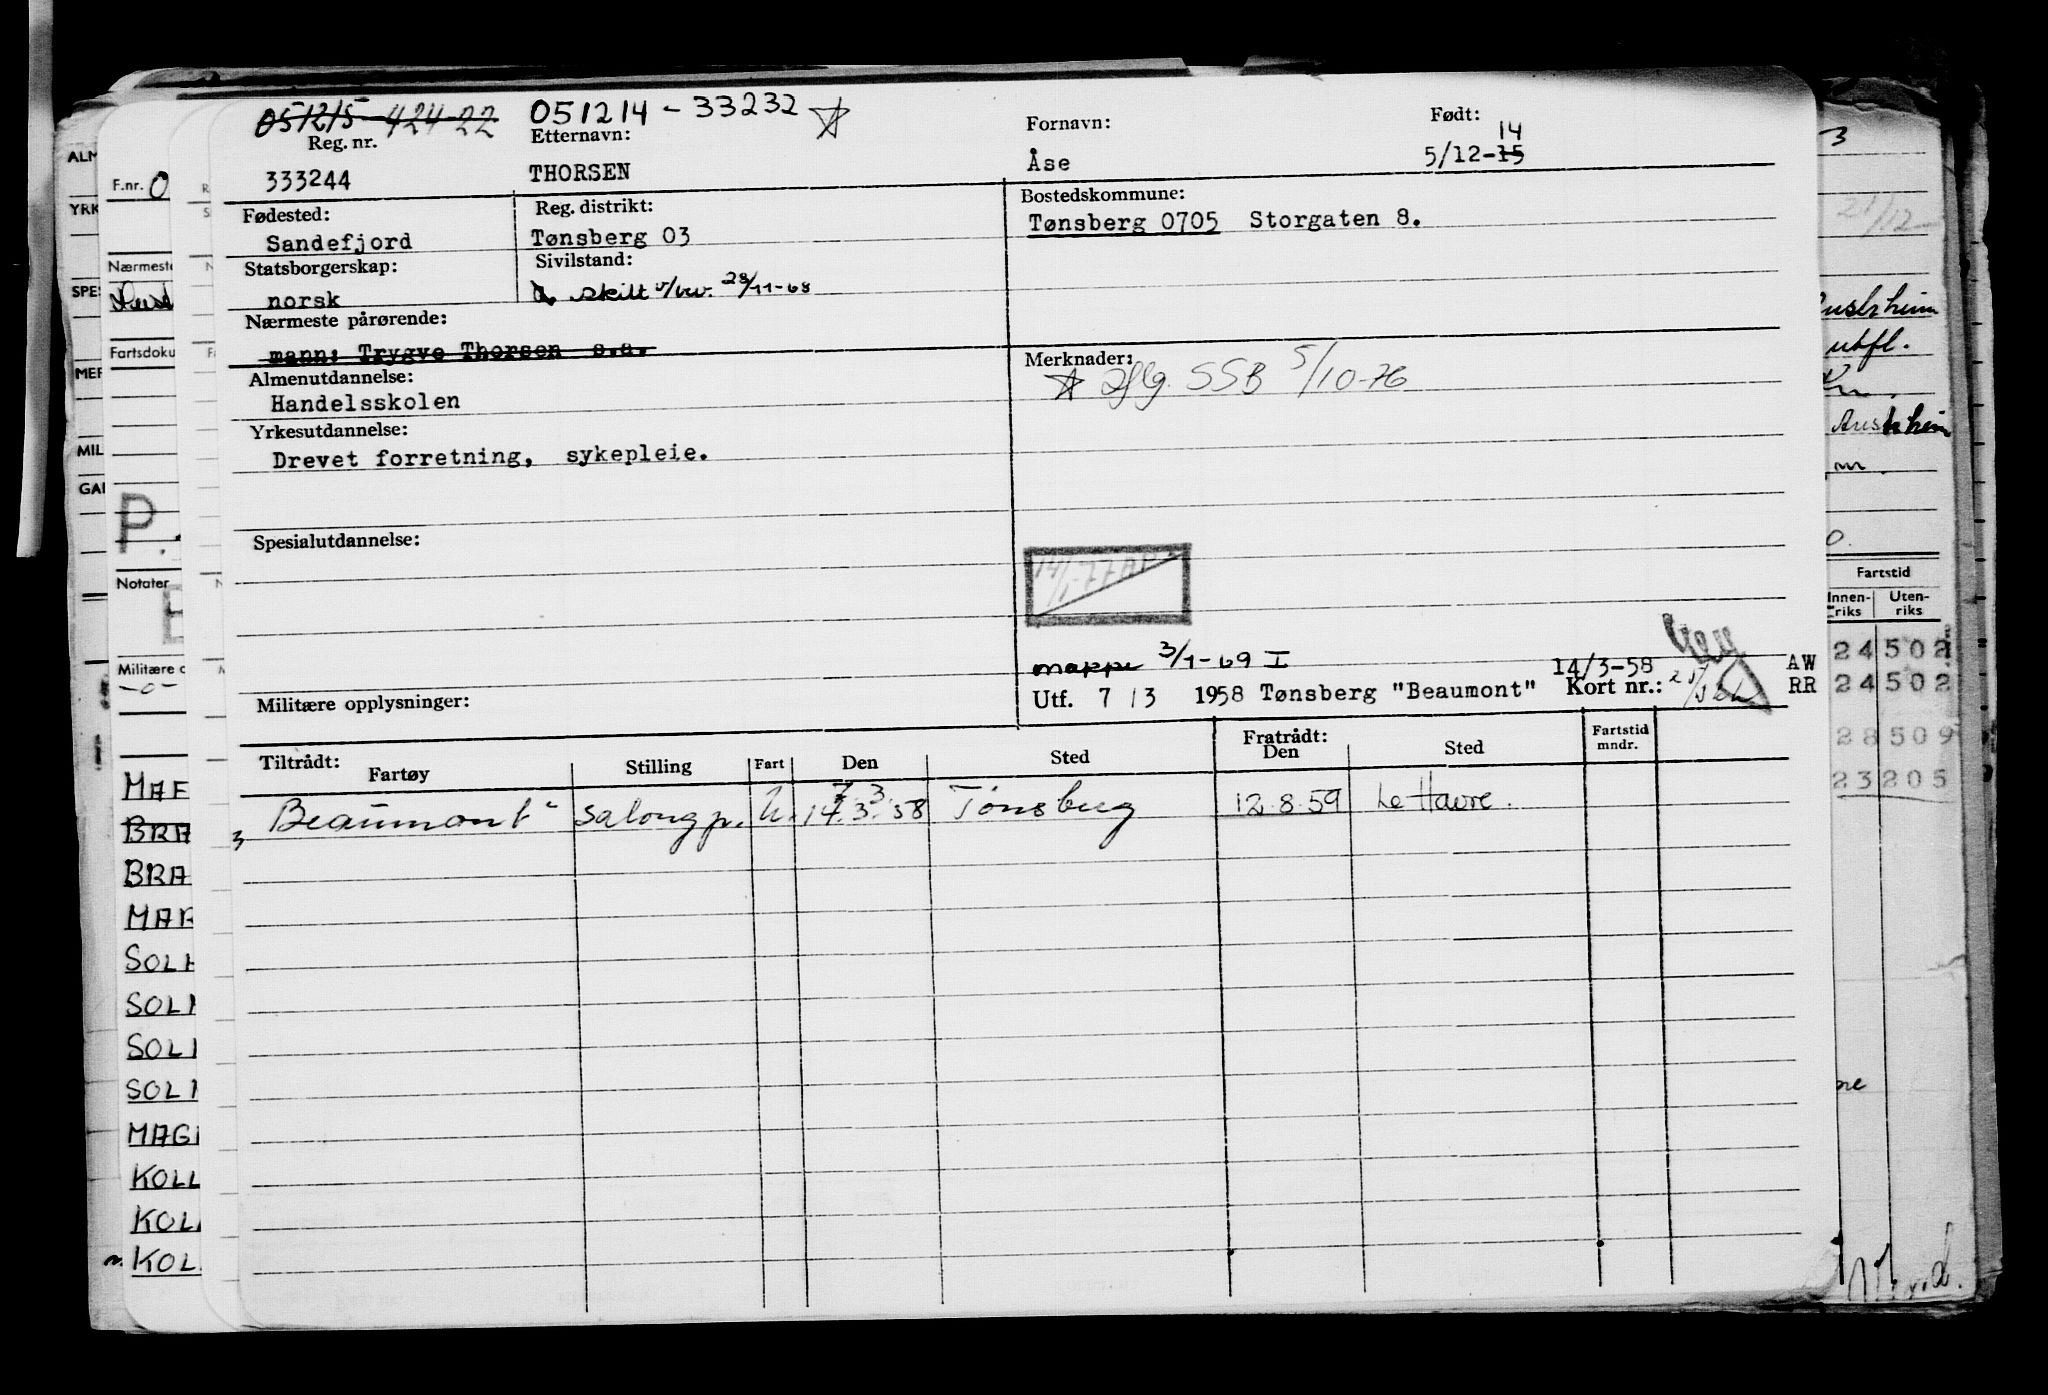 051215-424-22 051214-33232 ☆
Reg. nr. Etternavn: Fornavn: Født:
14
333244 THORSEN Åse 5/12-15
Fødested: Reg. distrikt: Bostedskommune:
Sandefjord Tønsberg 03 Tønsberg 0705 Storgaten 8.
Statsborgerskap: Sivilstand:
norsk skilt 28/11-68
Nærmeste pårørende:
mann: Trygve Thorsen s.a.
Merknader:
☆ iflg. SSB 5/10-76
Almenutdannelse:
Handelsskolen
Yrkesutdannelse:
Drevet forretning, sykepleie.
Spesialutdannelse:
mappe 3/1-69 I
14/3-58 AW
Militære opplysninger: Utf. 7/3 1958 Tønsberg "Beaumont" Kort nr.: RR
Tiltrådt: Fratrådt:
Fartøy Stilling Fart Den Sted Den Sted Fartstid mndr.
7. 3.
"Beaumont" salongp. U. 14.3.58 Tønsberg 12.8.59 Le Havre.
ALM
F.nr. 0
YRK
Nærmeste
SPES
Fartsdoku
MER
MIL
GAR
P.
Notater
Militære o
-o-
MAF
BRA
BRA
MAR
SOLH
SOLI
SOLI
SOLI
MAGI
KOLL
KOL
KOL
3
21/12
utfl.
Austrheim
Fartstid
Innenriks Utenriks
24 502
24 502
28 509
23 205